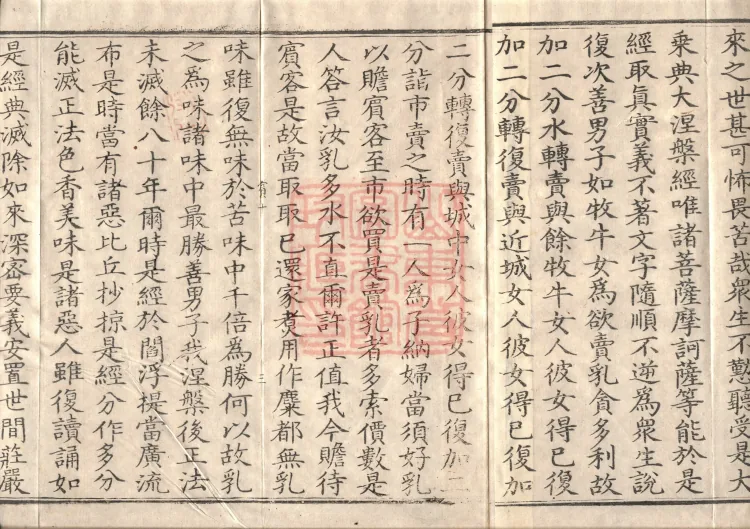 來之世甚可怖畏苦哉衆生不懃聽受是大
乗典大涅槃經唯諸菩薩摩訶薩等能於是
經取真實義不著文字隨順不逆爲衆生說
復次善男子如牧牛女爲欲賣乳貪多利故
加二分水轉賣與餘牧牛女人彼女得已復
加二分轉復賣與近城女人彼女得已復加
二分轉復賣與城中女人彼女得已復加二
分詣市賣之時有一人爲子納婦當須好乳
以贍賓客至市欲買是賣乳者多索價數是
人答言汝乳多水不直爾許正值我今贍待
賓客是故當取取已還家煑用作麋都無乳
味雖復無味於苦味中千倍爲勝何以故乳
之爲味諸味中最勝善男子我涅槃後正法
未滅餘八十年爾時是經於閻浮提當廣流
布是時當有諸惡比丘抄掠是經分作多分
能滅正法色香美味是諸惡人雖復讀誦如
是經典滅除如來深密要義安置世間莊嚴
三